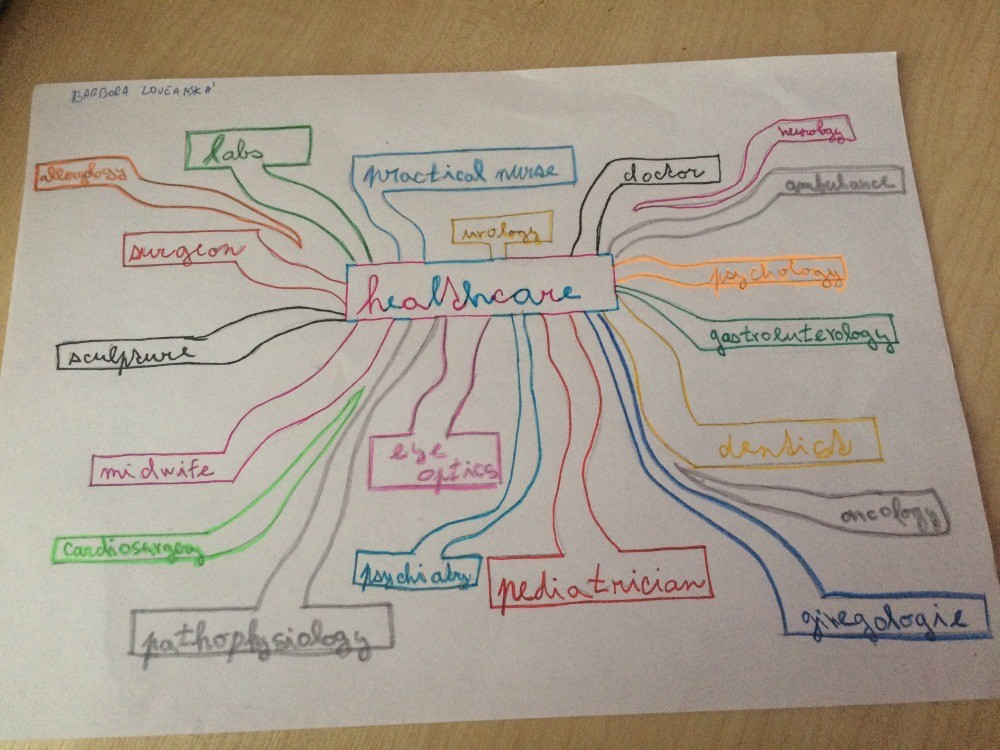 BARBORA LOVČANSKÁ
neurology
labs
allergology
practical nurse
doctor
ambulance
urology
surgeon
psychology
healthcare
gastroluterology
sculpture
dentist
midwife
eye
optics
oncology
cardiosurgery
psychiatry
pediatrician
ginegologie
pathophysialogy